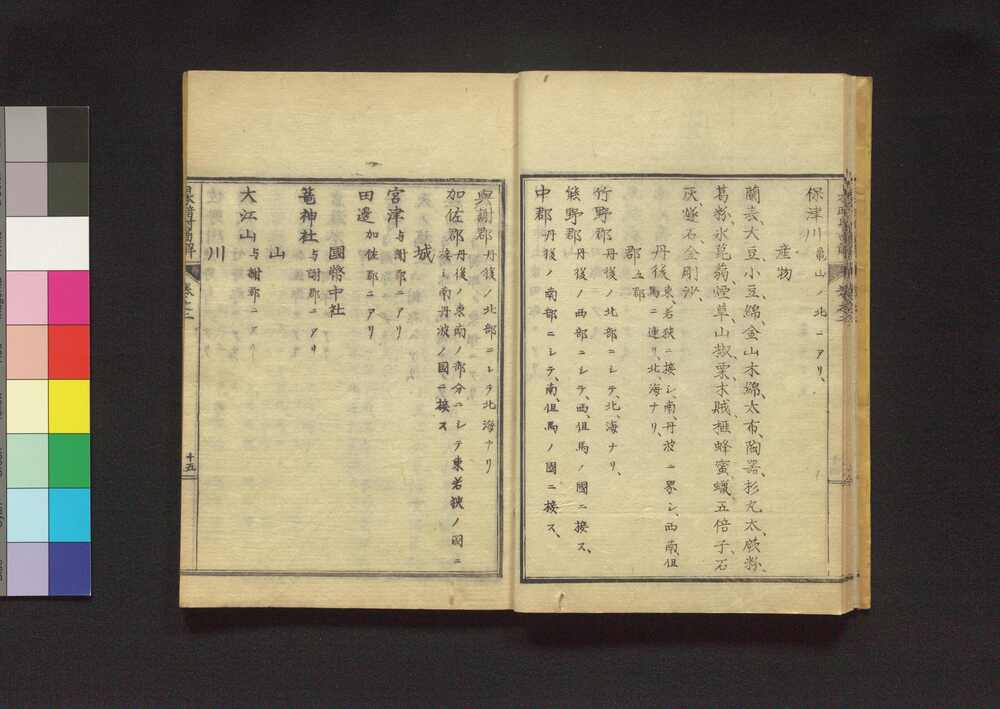 保津川 亀山ノ北ニアリ、
産物
蘭蓆大豆、小豆、綿、金山木綿、太布、陶器、杉丸太、蕨粉、
葛粉、氷蒟蒻、煙草、山椒、栗、木賊、榧、蜂蜜、蠟、五倍子、石
灰、燧石、金剛砂、
丹後 東、若狹ニ接シ、南、丹波ニ界シ、西南、但
馬ニ連リ、北、海ナリ、
郡 五郡
竹野郡 丹後ノ北部ニシテ、北、海ナリ、
熊野郡 丹後ノ西部ニシテ、西、但馬ノ國ニ接ス、
中郡 丹後ノ南部ニシテ、南、但馬ノ國ニ接ス、
與謝郡 丹後ノ北部ニシテ北海ナリ
加佐郡 丹後ノ東南ノ部分ニシテ東若狹ノ國ニ
接シ南丹波ノ國ニ接ス
城
宮津 与謝郡ニアリ
田邊 加佐郡ニアリ
國幣中社
篭神社 与謝郡ニアリ
山
大江山 与謝郡ニアリ
川
十五